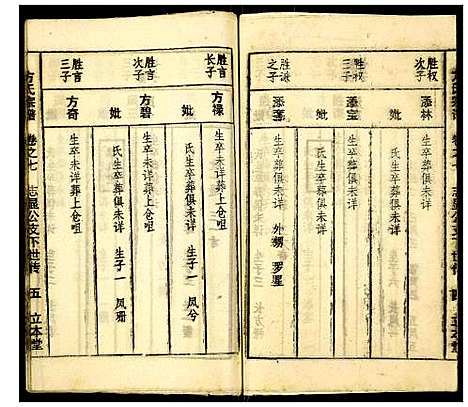 胜权
次子
添林
生卒葬俱未详
胜权
三子
添宝
妣
生卒葬俱未详
氏生卒葬俱未详
胜派
之子
添
生卒葬俱未详
外甥 罗星
胜言
长子
方禄
生卒未详葬上仓咀
妣
氏生卒葬俱未详 生子一 凤兮
胜言
次子
方碧
生卒未详葬上仓咀
妣
氏生卒葬俱未详 生子一 凤珊
胜言
三子
方奇
生卒未详葬上仓咀
方氏宗谱 卷之七 志显公支下世传 五 立本堂